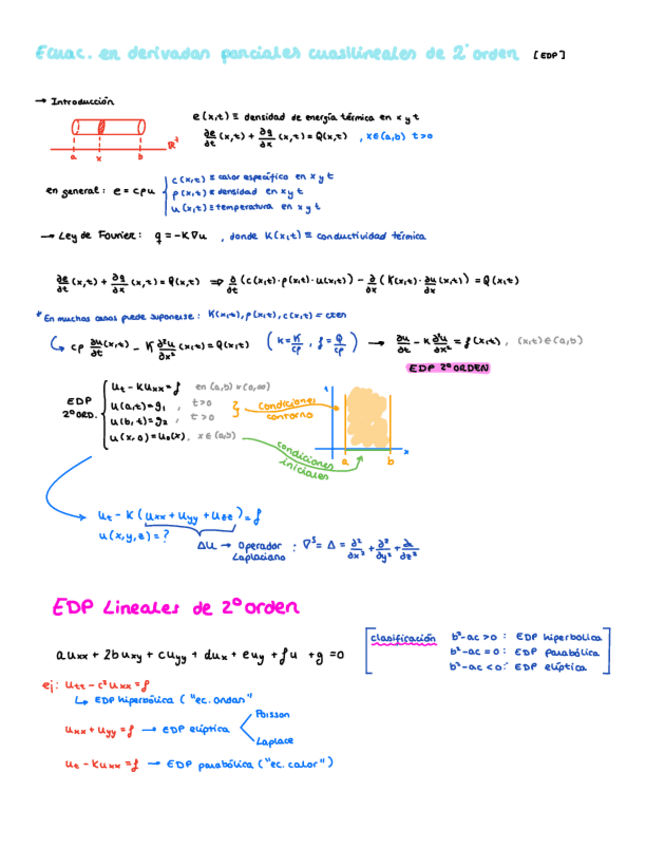 Ecuac. en derivadas parciales cuasilineales de 2º orden [EDP]
→ Introducción
a x b
e(x,t) ≡ densidad de energía térmica en x y t
∂e/∂t (x,t) + ∂q/∂x (x,t) = Q(x,t) , x∈(a,b) t>0
en general: e = cρu
c(x,t) ≡ calor específico en x y t
ρ(x,t) ≡ densidad en x y t
u(x,t) ≡ temperatura en x y t
→ Ley de Fourier: q = -K∇u , donde K(x,t) ≡ conductividad térmica
∂e/∂t (x,t) + ∂q/∂x (x,t) = Q(x,t) ⇒ ∂/∂t (c(x,t)·ρ(x,t)·u(x,t)) - ∂/∂x (K(x,t)·∂u/∂x (x,t)) = Q(x,t)
* En muchos casos puede suponerse: K(x,t), ρ(x,t), c(x,t) = cten
↳ cρ ∂u/∂t (x,t) - K ∂²u/∂x² (x,t) = Q(x,t) (k = K/cρ , f = Q/cρ) → ∂u/∂t - K ∂²u/∂x² = f(x,t), (x,t)∈(a,b)
EDP 2º ORDEN
EDP 2º ORD.
ut - kuxx = f en (a,b)×(0,∞)
u(a,t) = g₁ , t>0
u(b,t) = g₂ , t>0
u(x,0) = u₀(x), x∈(a,b)
condiciones contorno
condiciones iniciales
t
x
a b
ut - K(uxx + uyy + uzz) = f
u(x,y,z) = ?
Δu → Operador Laplaciano : ∇ˢ = Δ = ∂²/∂x² + ∂²/∂y² + ∂/∂z²
EDP Lineales de 2º orden
auxx + 2buxy + cuyy + dux + euy + fu + g = 0
clasificación b²-ac > 0 : EDP hiperbólica
b²-ac = 0 : EDP parabólica
b²-ac < 0 : EDP elíptica
ej: utt - c²uxx = f
↳ EDP hiperbólica ("ec. ondas"
uxx + uyy = f → EDP elíptica
Poisson
Laplace
ut - Kuxx = f → EDP parabólica ("ec. calor")